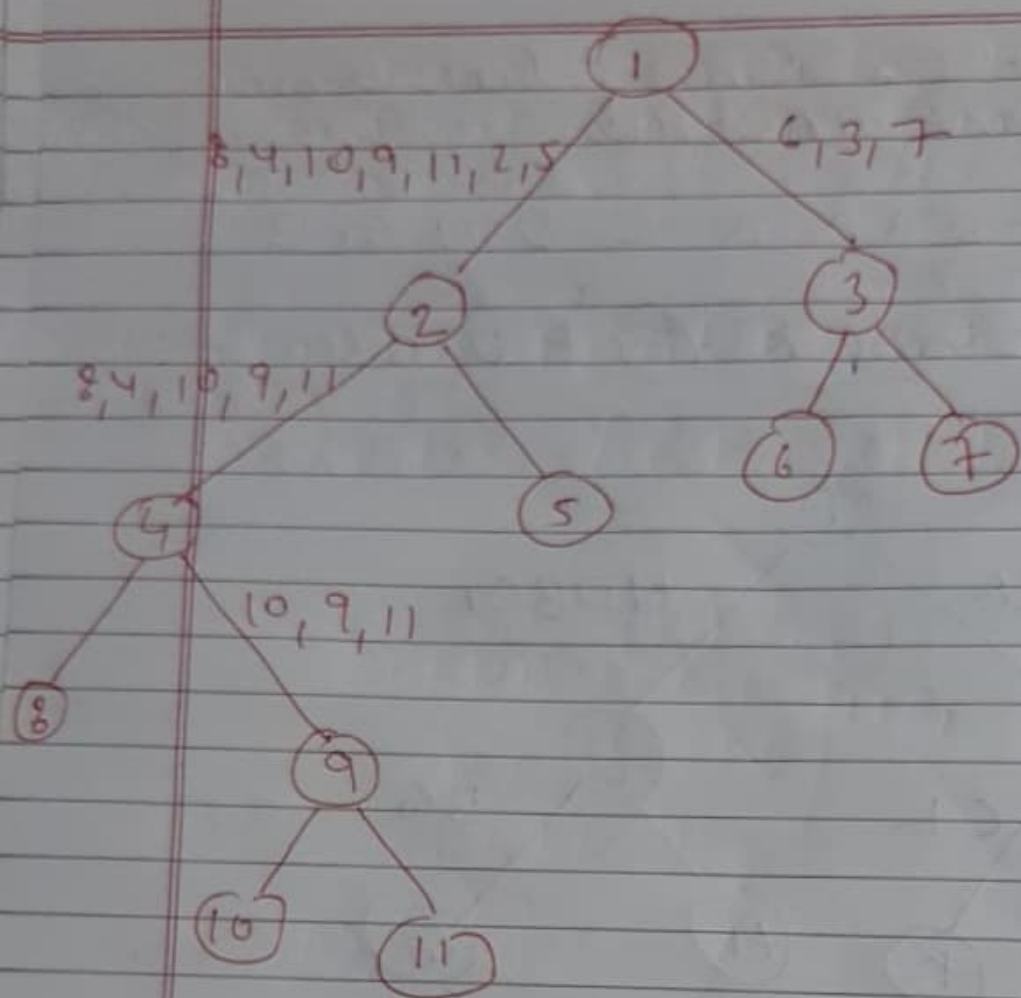 1
8,4,10,9,11,2,5
6,3,7
2
3
8,4,10,9,11
6
7
4
5
10,9,11
8
9
10
11